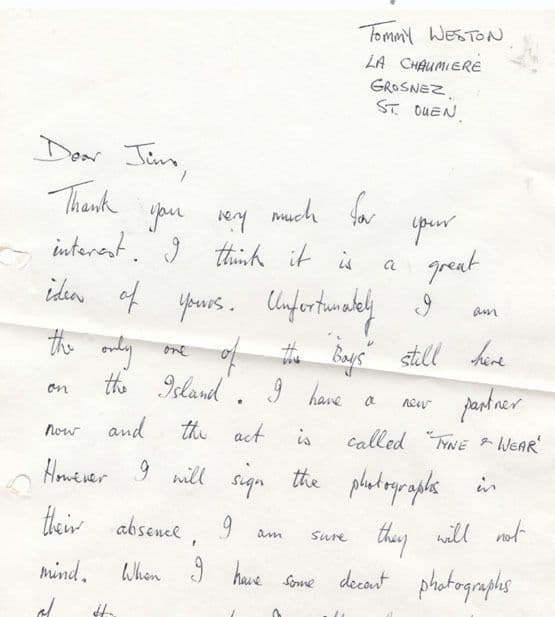 TOMMY WESTON.
LA CHAUMIERE
GROSNEZ.
ST. OUEN.
Dear Jim,
Thank you very much for your
interest. I think it is a great
idea of yours. Unfortunately I am
the only one of the "Boys" still here
on the Island. I have a new partner
now and the act is called "TYNE & WEAR'
However I will sign the photographs in
their absence, I am sure they will not
mind. When I have some decent photographs
of the